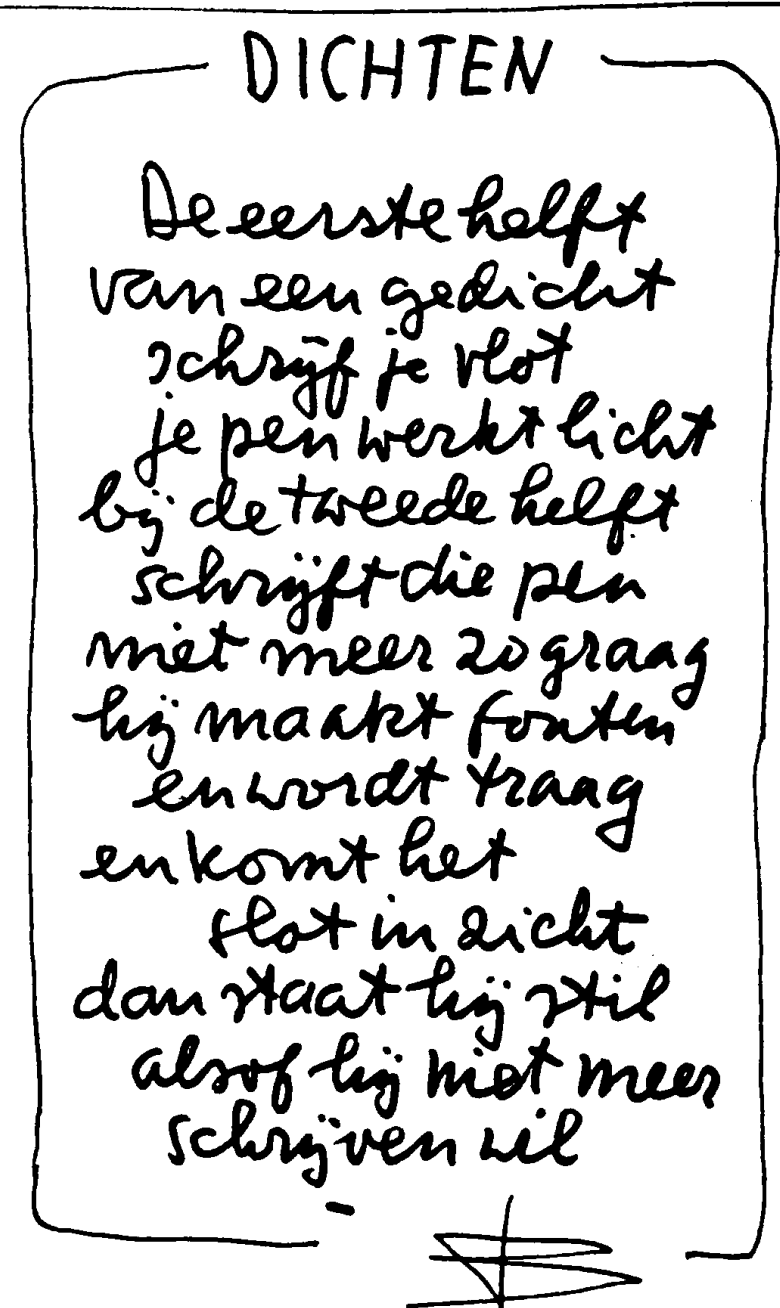 DICHTEN
De eerste helft
van een gedicht
schrijf je vlot
je pen werkt licht
bij de tweede helft
schrijft die pen
niet meer zo graag
hij maakt fouten
en wordt traag
en komt het
slot in zicht
dan staat hij stil
alsof hij niet meer
schrijven wil
-